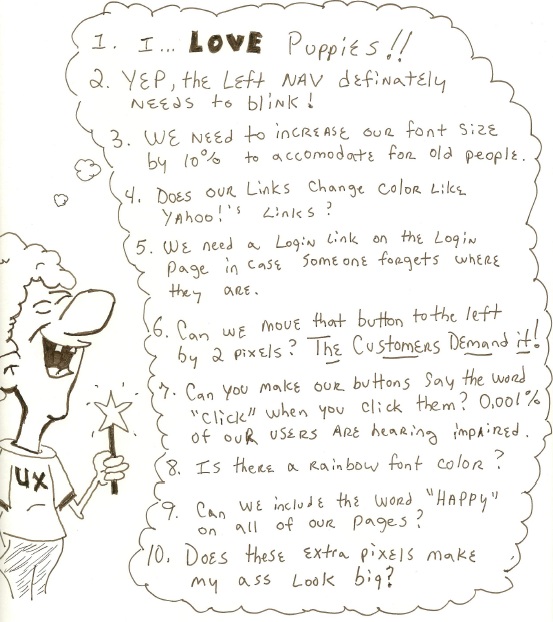 1. I... LOVE Puppies!!
2. YEP, the Left NAV definately
NEEDS to blink!
3. WE NEED to increase our font size
by 10% to accomodate for old people.
4. Does our Links change color Like
Yahoo!'s Links?
5. We need a Login Link on the Login
Page in case someone forgets where
they are.
6. Can we move that button to the left
by 2 pixels? The Customers Demand it!
7. Can you make our buttons say the word
"click" when you click them? 0.001%
of our users are hearing impaired.
8. Is there a rainbow font color?
9. Can we include the word "HAPPY"
on all of our pages?
10. Does these extra pixels make
my ass Look big?
UX